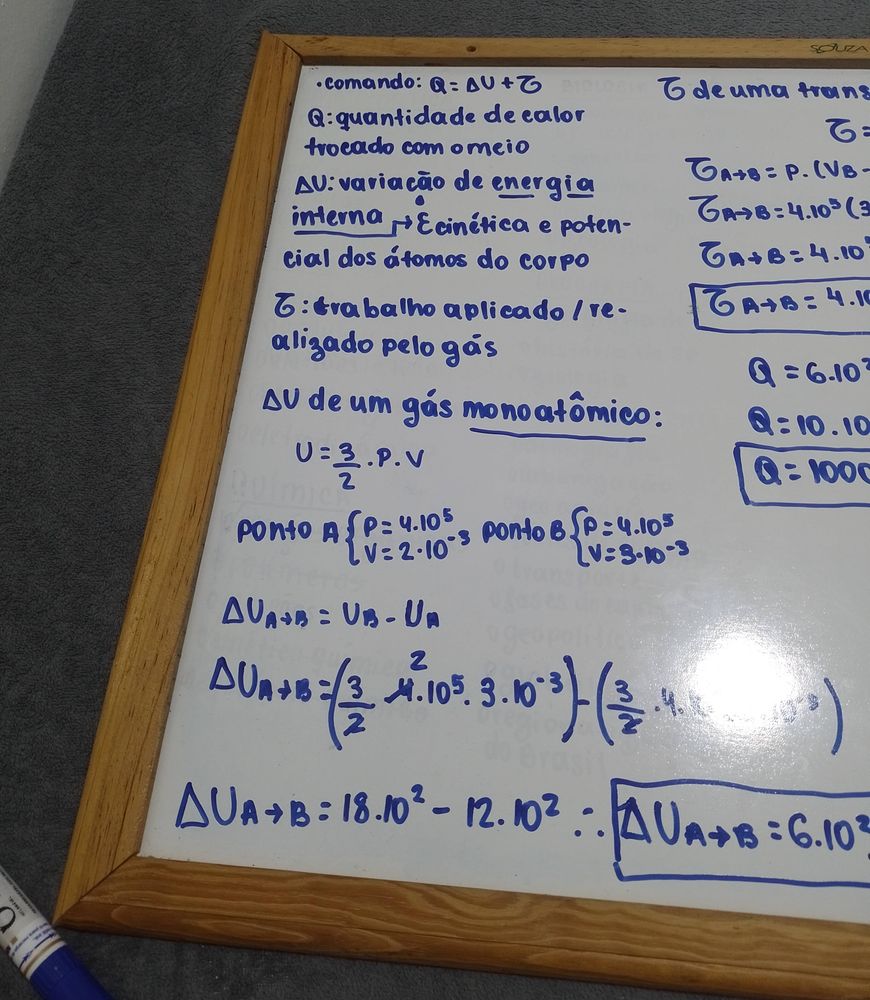 .comando: Q = ΔU + τ
Q: quantidade de calor
trocado com o meio
ΔU: variação de energia
interna → Ecinética e poten-
cial dos átomos do corpo
τ: trabalho aplicado / re-
alizado pelo gás
ΔU de um gás monoatômico:
U = 3/2 . P . V
Ponto A { P = 4.10⁵ Ponto B { P = 4.10⁵
V = 2.10⁻³ V = 3.10⁻³
ΔU A→B = UB - UA
2
ΔU A→B = (3/2 . 4.10⁵ . 3.10⁻³) - (3/2 . 4.
ΔU A→B = 18.10² - 12.10² ∴ ΔU A→B = 6.10²
SOUZA
τ de uma trans
τ =
τ A→B = P . (VB -
τ A→B = 4.10⁵ (3
τ A→B = 4.10
τ A→B = 4.10
Q = 6.10²
Q = 10.10
Q = 1000